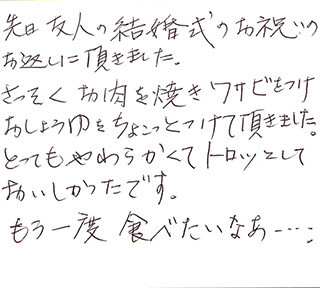 先日 友人の結婚式のお祝いの
お返しに頂きました。
さっそく お肉を焼き ワサビをつけ
おしょうゆをちょこっとつけて頂きました。
とってもやわらかくて トロッとして
おいしかったです。
もう一度 食べたいなあー…。